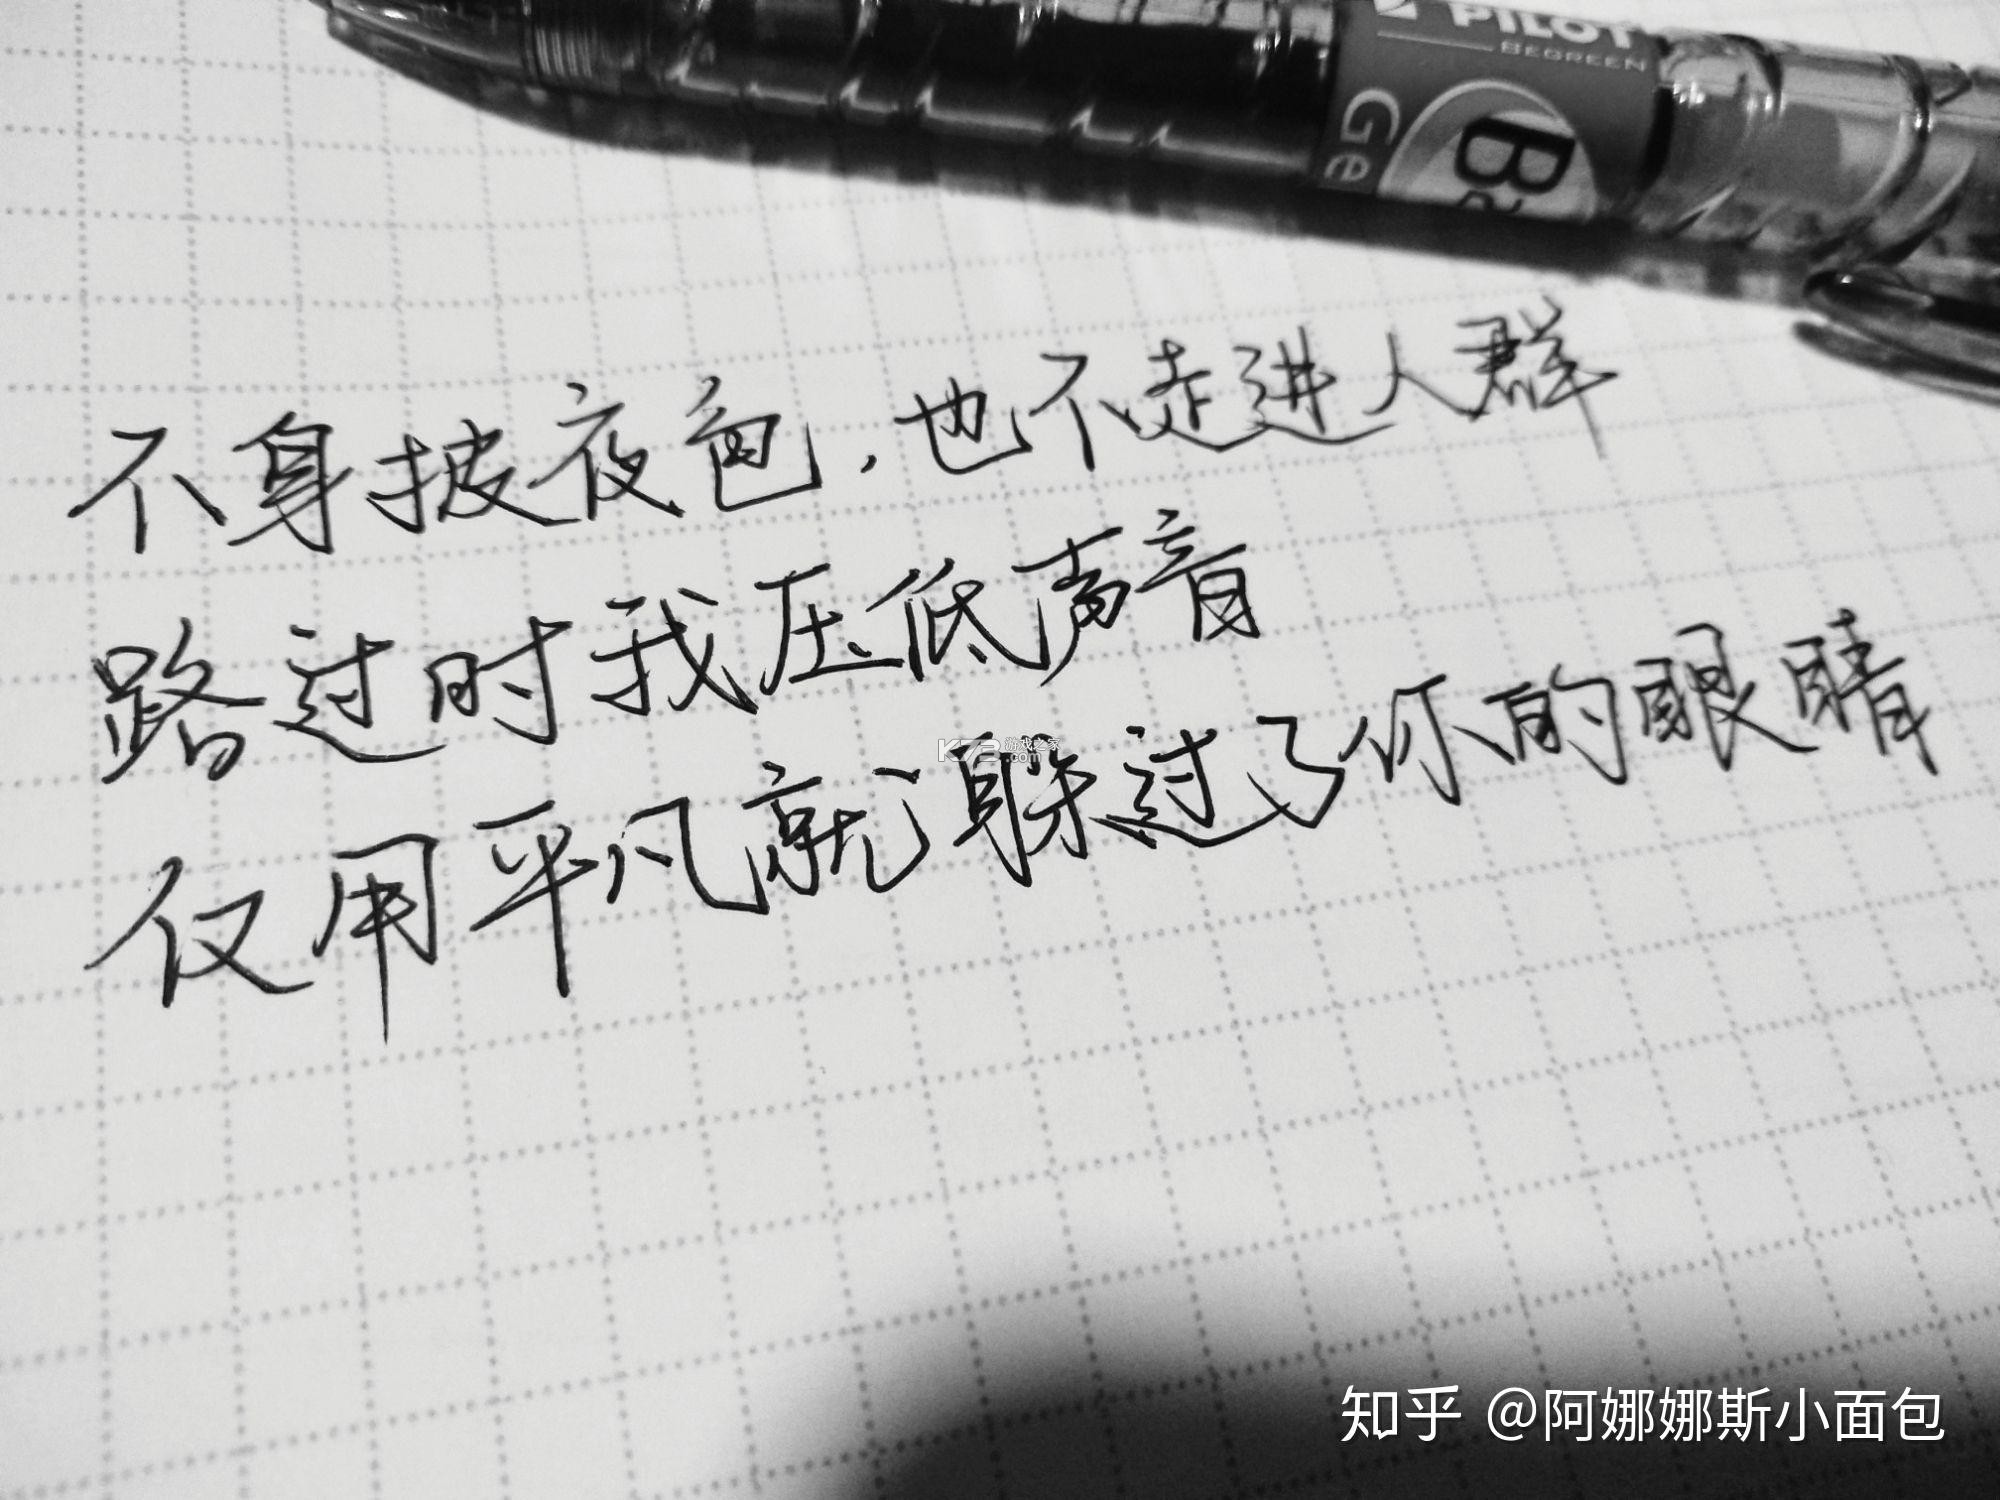 PILOT
BEGREEN
Ge
Ba
不身披夜色，也不走进人群
路过时我压低声音
仅用平凡就躲过了你的眼睛
K73 游戏之家
.com
知乎 @阿娜娜斯小面包